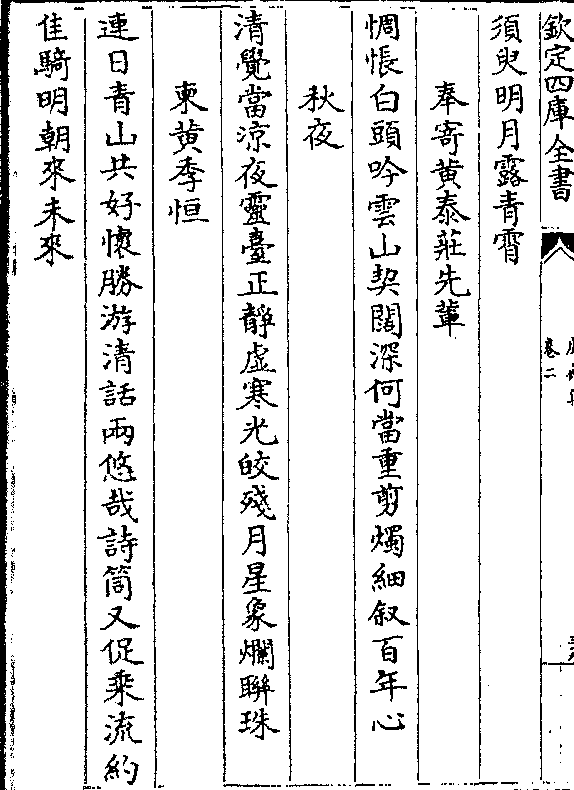 欽定四庫全書
卷二
須臾明月露青霄
奉寄黄泰莊先輩
惆悵白頭吟雲山契闊深何當重剪燭細叙百年心
秋夜
清覺當凉夜靈臺正靜虚寒光皎殘月星象爛聯珠
柬黄季恒
連日青山共好懷勝游清話兩悠哉詩筒又促乘流約
佳騎明朝來未來